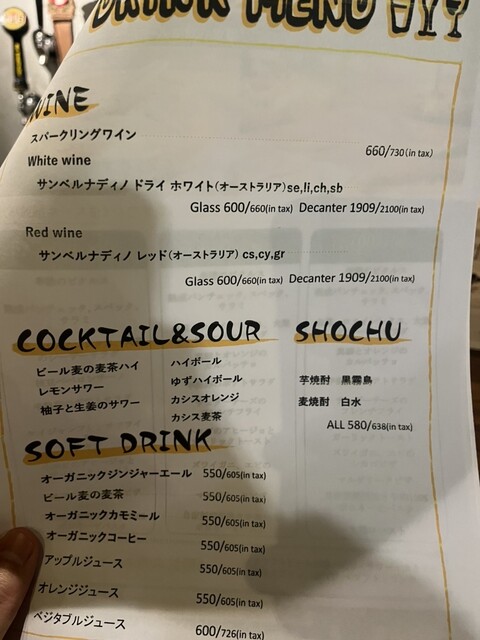 DRINK MENU
WINE
スパークリングワイン 660/730(in tax)
White wine
サンベルナディノ ドライ ホワイト(オーストラリア)se,li,ch,sb
Glass 600/660(in tax) Decanter 1909/2100(in tax)
Red wine
サンベルナディノ レッド(オーストラリア) cs,cy,gr
Glass 600/660(in tax) Decanter 1909/2100(in tax)
COCKTAIL&SOUR
ビール麦の麦茶ハイ
レモンサワー
柚子と生姜のサワー
ハイボール
ゆずハイボール
カシスオレンジ
カシス麦茶
SHOCHU
芋焼酎 黒霧島
麦焼酎 白水
ALL 580/638(in tax)
SOFT DRINK
オーガニックジンジャーエール 550/605(in tax)
ビール麦の麦茶 550/605(in tax)
オーガニックカモミール 550/605(in tax)
オーガニックコーヒー 550/605(in tax)
アップルジュース 550/605(in tax)
オレンジジュース 550/605(in tax)
ベジタブルジュース 600/726(in tax)